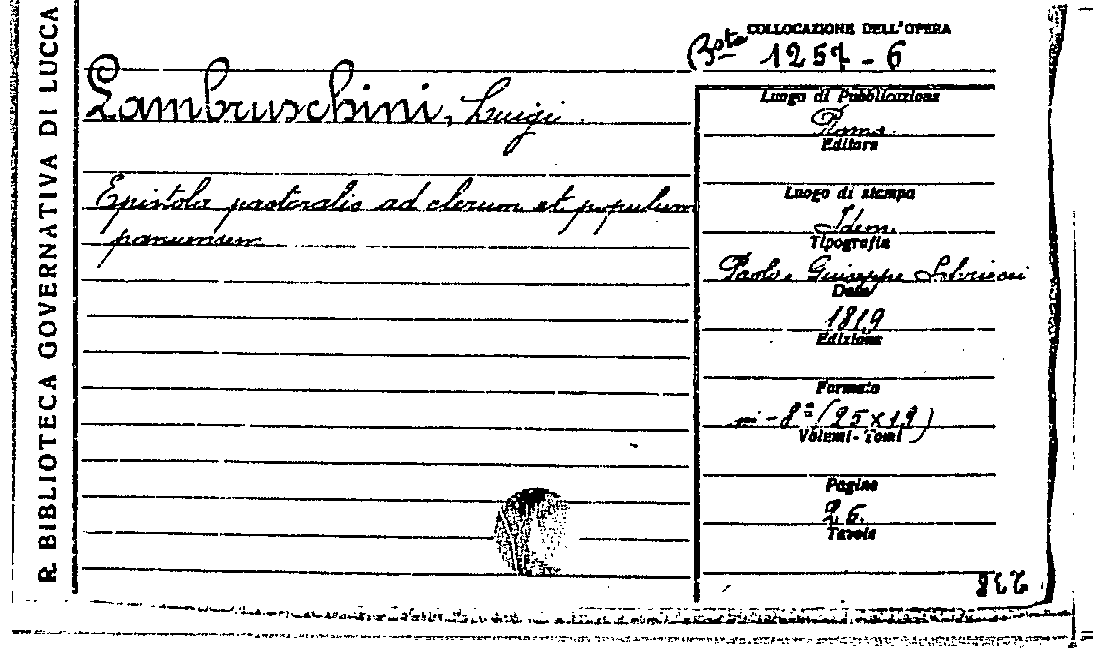 R. BIBLIOTECA GOVERNATIVA DI LUCCA
COLLOCAZIONE DELL'OPERA
Bta 1257 - 6
Lambruschini, Luigi.
Epistola pastoralis ad clerum et populum
Luogo di Pubblicazione
Roma
Editore
Luogo di stampa
Idem.
Tipografia
Paolo e Giuseppe
Data
1819
Edizione
Formato
in-8° (25x19)
Volumi-Tomi
Pagine
26.
Tavole
238